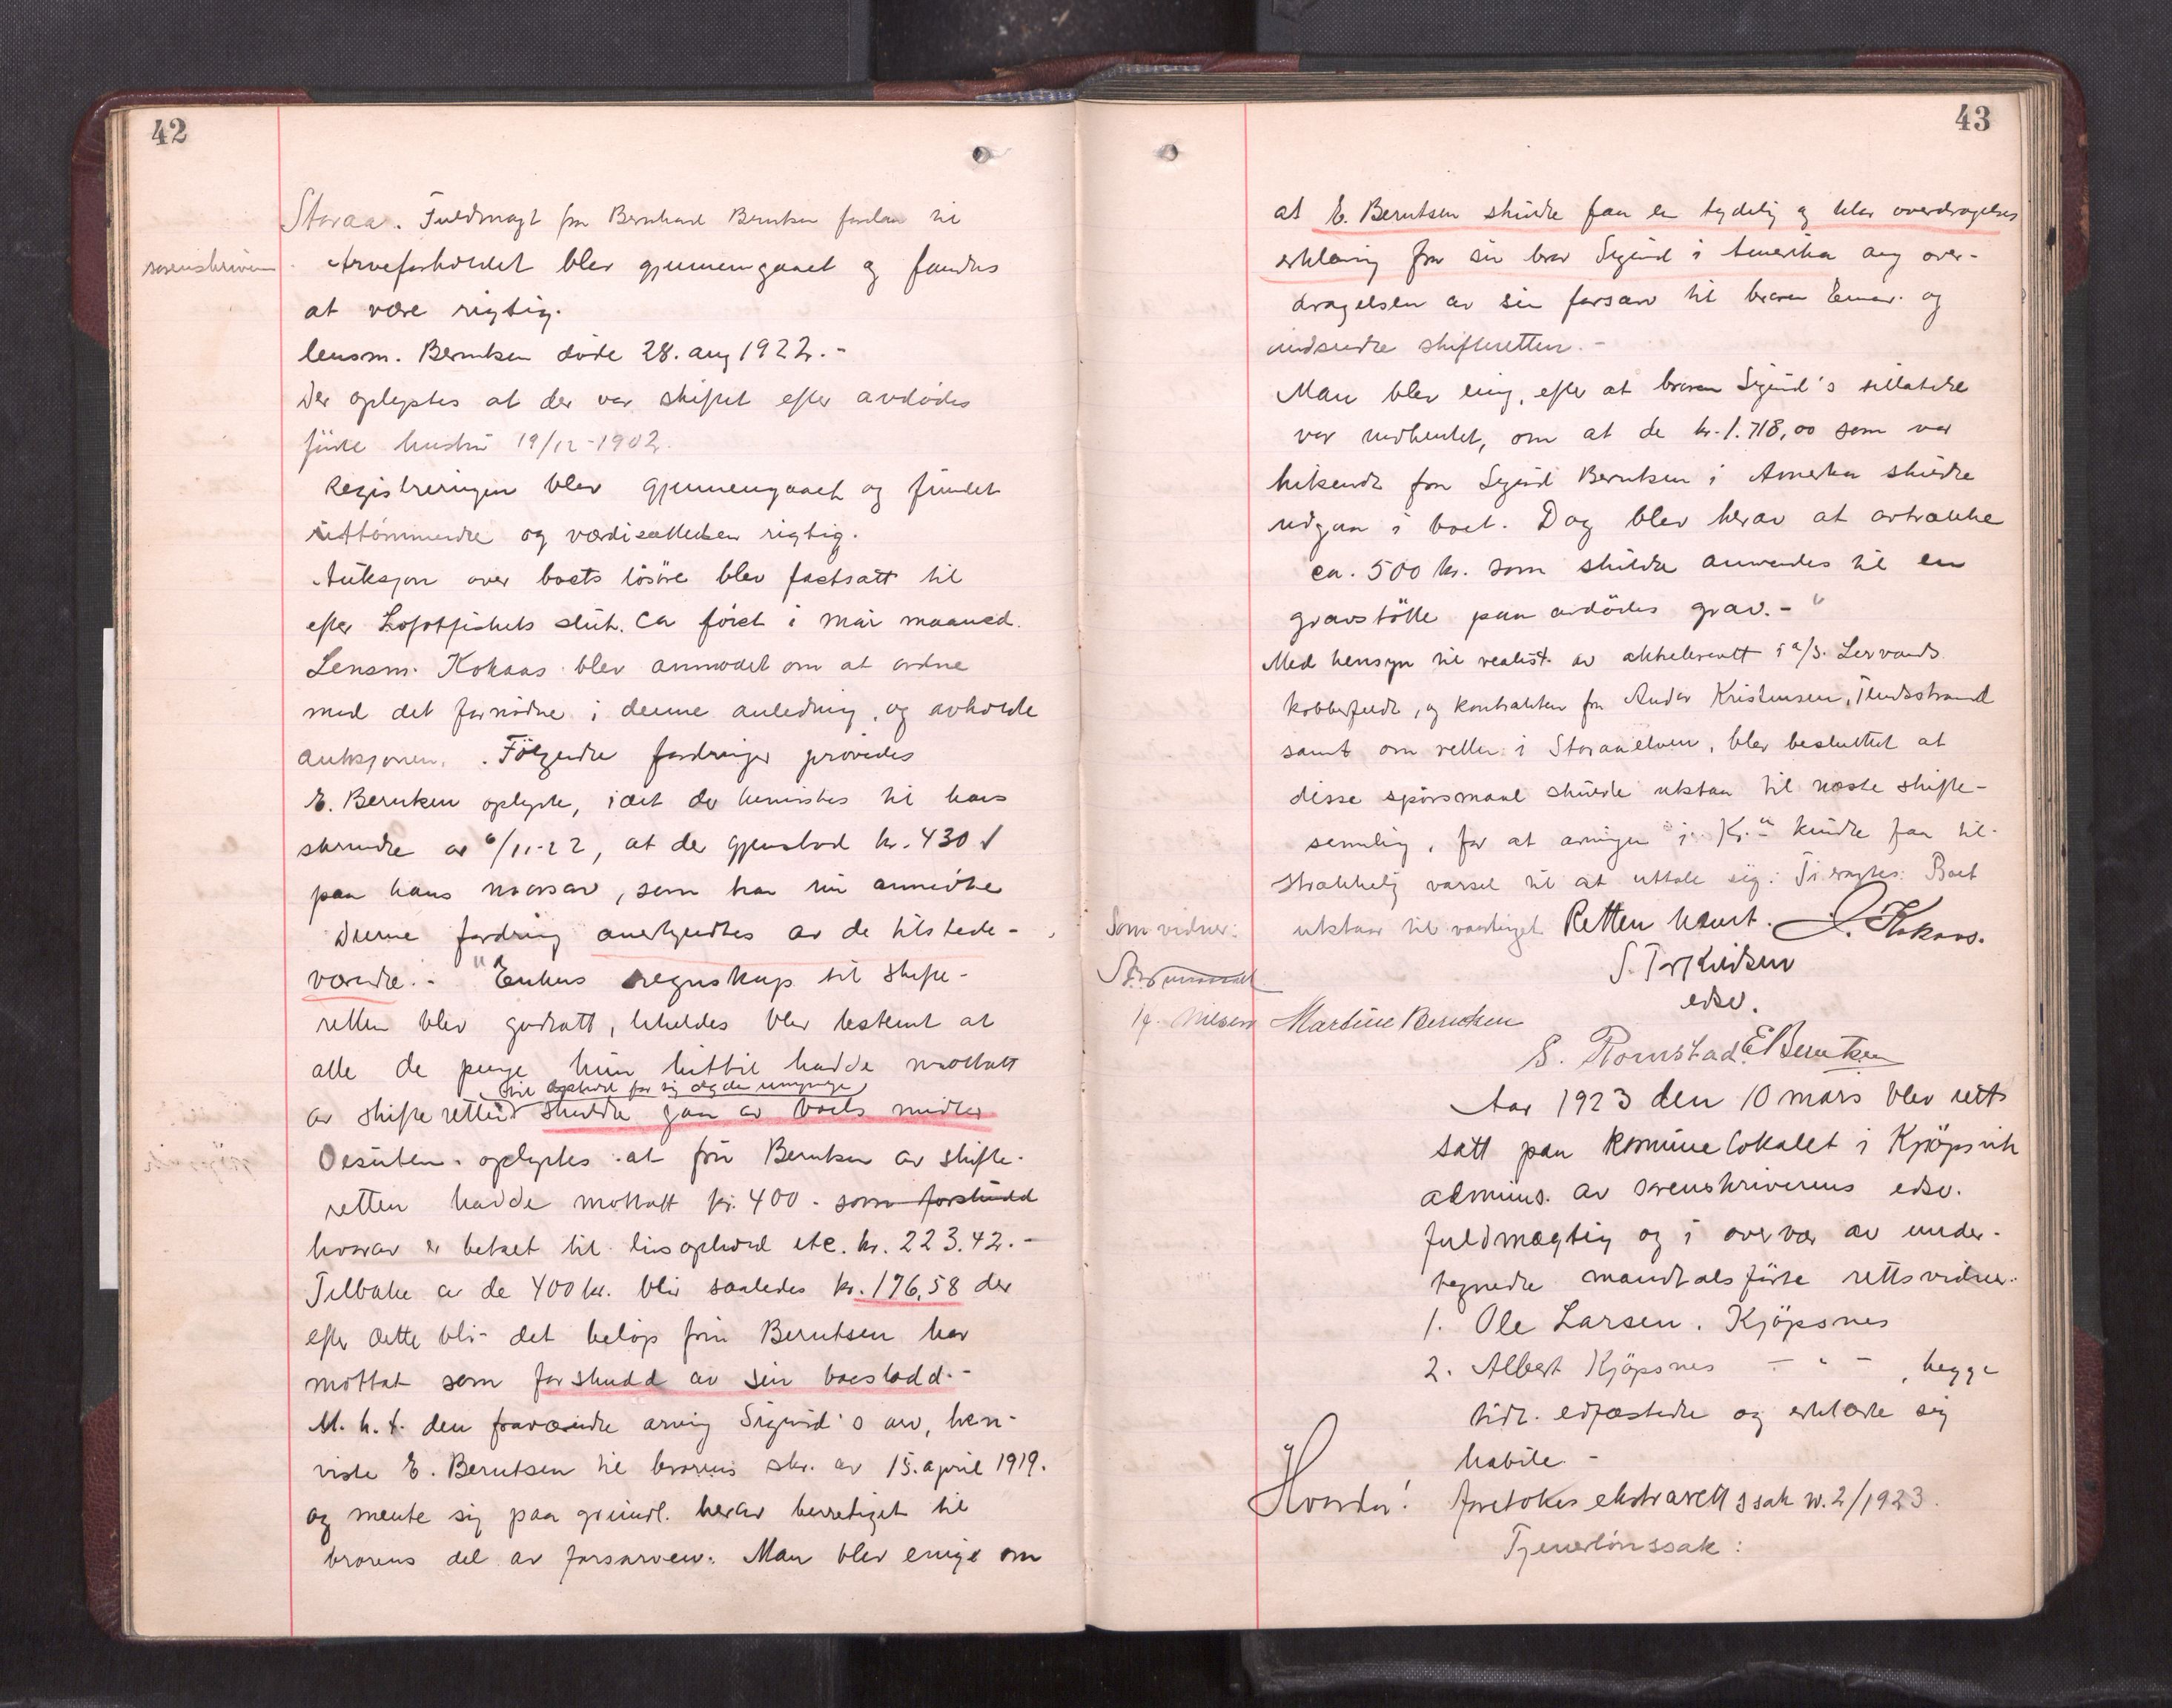 42
Storaa. Fuldmagt fra Bernhard Berntsen forelaa til
sorenskriveren. Arveforholdet blev gjennemgaaet og fandtes
at være rigtig.
lensm. Berntsen døde 28. aug 1922.-
Der oplystes at der var skiftet efter avdødes
første hustru 19/12-1902.
Registreringen blev gjennemgaaet og fundet
uttømmende og værdisættelsen rigtig.
Auksjon over boets løsøre blev fastsatt til
efter Lofotfiskets slut. Ca først i mai maaned.
Lensm. Kokaas blev anmodet om at ordne
med det fornødne i denne anledning, og avholde
auksjonen. Følgende fordringer prøvedes
E. Berntsen oplyste, idet der henvistes til hans
skrivelse av 6/11-22, at der gjenstod kr. 430
paa hans morsarv, som han nu anmeldte
Denne fordring anerkjendtes av de tilstede-
værende.- "Enkens regnskap til skifte-
retten blev godtatt, likeledes blev bestemt at
alle de penge hun hittil hadde mottatt
til ophold for sig og de umyndige
av skifteretten skulde gaa av boets midler
Desuten oplystes at fru Berntsen av skifte-
retten hadde mottatt kr. 400.- som forskudd
hvorav er betalt til livsophold etc. kr. 223.42.-
Tilbake av de 400 kr. blir saaledes kr. 176,58 der
efter dette blir det beløp fru Berntsen har
mottat som forskudd av sin boeslodd.-
M. h. t. den fraværende arving Sigurd's arv, hen-
viste E. Berntsen til brorens skr. av 15. april 1919.
og mente sig paa grundl. herav berettiget til
brorens del av farsarven. Man blev enige om
43
at E. Berntsen skulde faa en tydelig og klar overdragelses
erklæring fra sin bror Sigurd i Amerika ang over-
dragelsen av sin farsarv til broren Einar. og
indsende skifteretten.-
Man blev enig, efter at broren Sigurd's tillatelse
var indhentet, om at de kr. 1.718,00 som var
hitsendt fra Sigurd Berntsen i Amerika skulde
indgaa i boet. Dog blev herav at avtrække
ca. 500 kr. som skulde anvendes til en
gravstøtte paa avdødes grav.- "
Med hensyn til realist. av aktiebrevatt i a/s. Lervands
kobberfeldt, og kontrakten fra Andor Kristensen, Tendsstrand
samt om retten i Storaaelven, blev besluttet at
disse spørsmaal skulde utstaa til næste skifte-
samling, for at arvingen i "Kr.a" kunde faa til-
strækkelig varsel til at uttale sig: Ti vragtes: Boet
utstaar til vaartinget. Retten hævet. J. Kokaas.
Som vidner: S. Torkildsen
edsv.
Nilsen Martine Berntsen
S. Ramstad E Berntsen
Aar 1923 den 10 mars blev rett
satt paa Kommunelokalet i Kjøpsvik
adminis. av sorenskriverens edsv.
fuldmægtig og i overvær av under-
tegnede mandtalsførte rettsvidner.
1. Ole Larsen. Kjøpsnes
2. Albert Kjøpsnes - " - , begge
tidl. edfæstede og erklærte sig
habile.-
Hvorda! foretokes ekstrarettssak nr. 2/1923.
Tjenerlønssak: